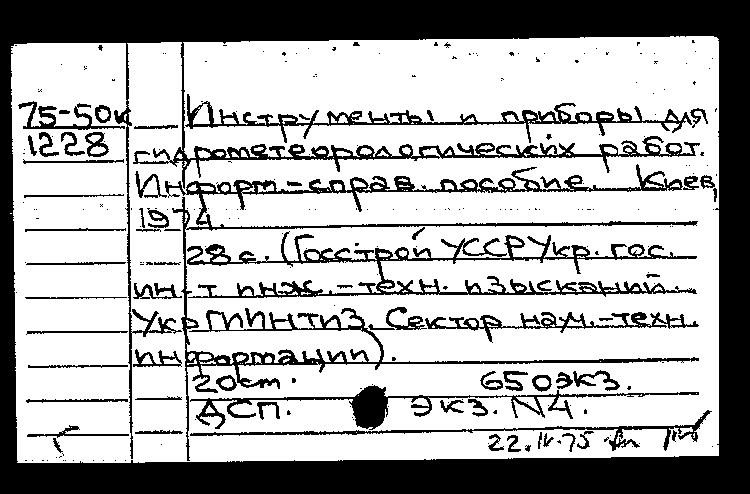 75-50к Инструменты и приборы для
1228 гидрометеорологических работ.
Информ.-справ. пособие. Киев,
1974.
28 с. (Госстрой УССР Укр. гос.
ин-т инж.-техн. изысканий.
УкрГИИНТИЗ. Сектор науч.-техн.
информации).
20 см. 650 экз.
ДСП. Экз. N4.
22.IV.75